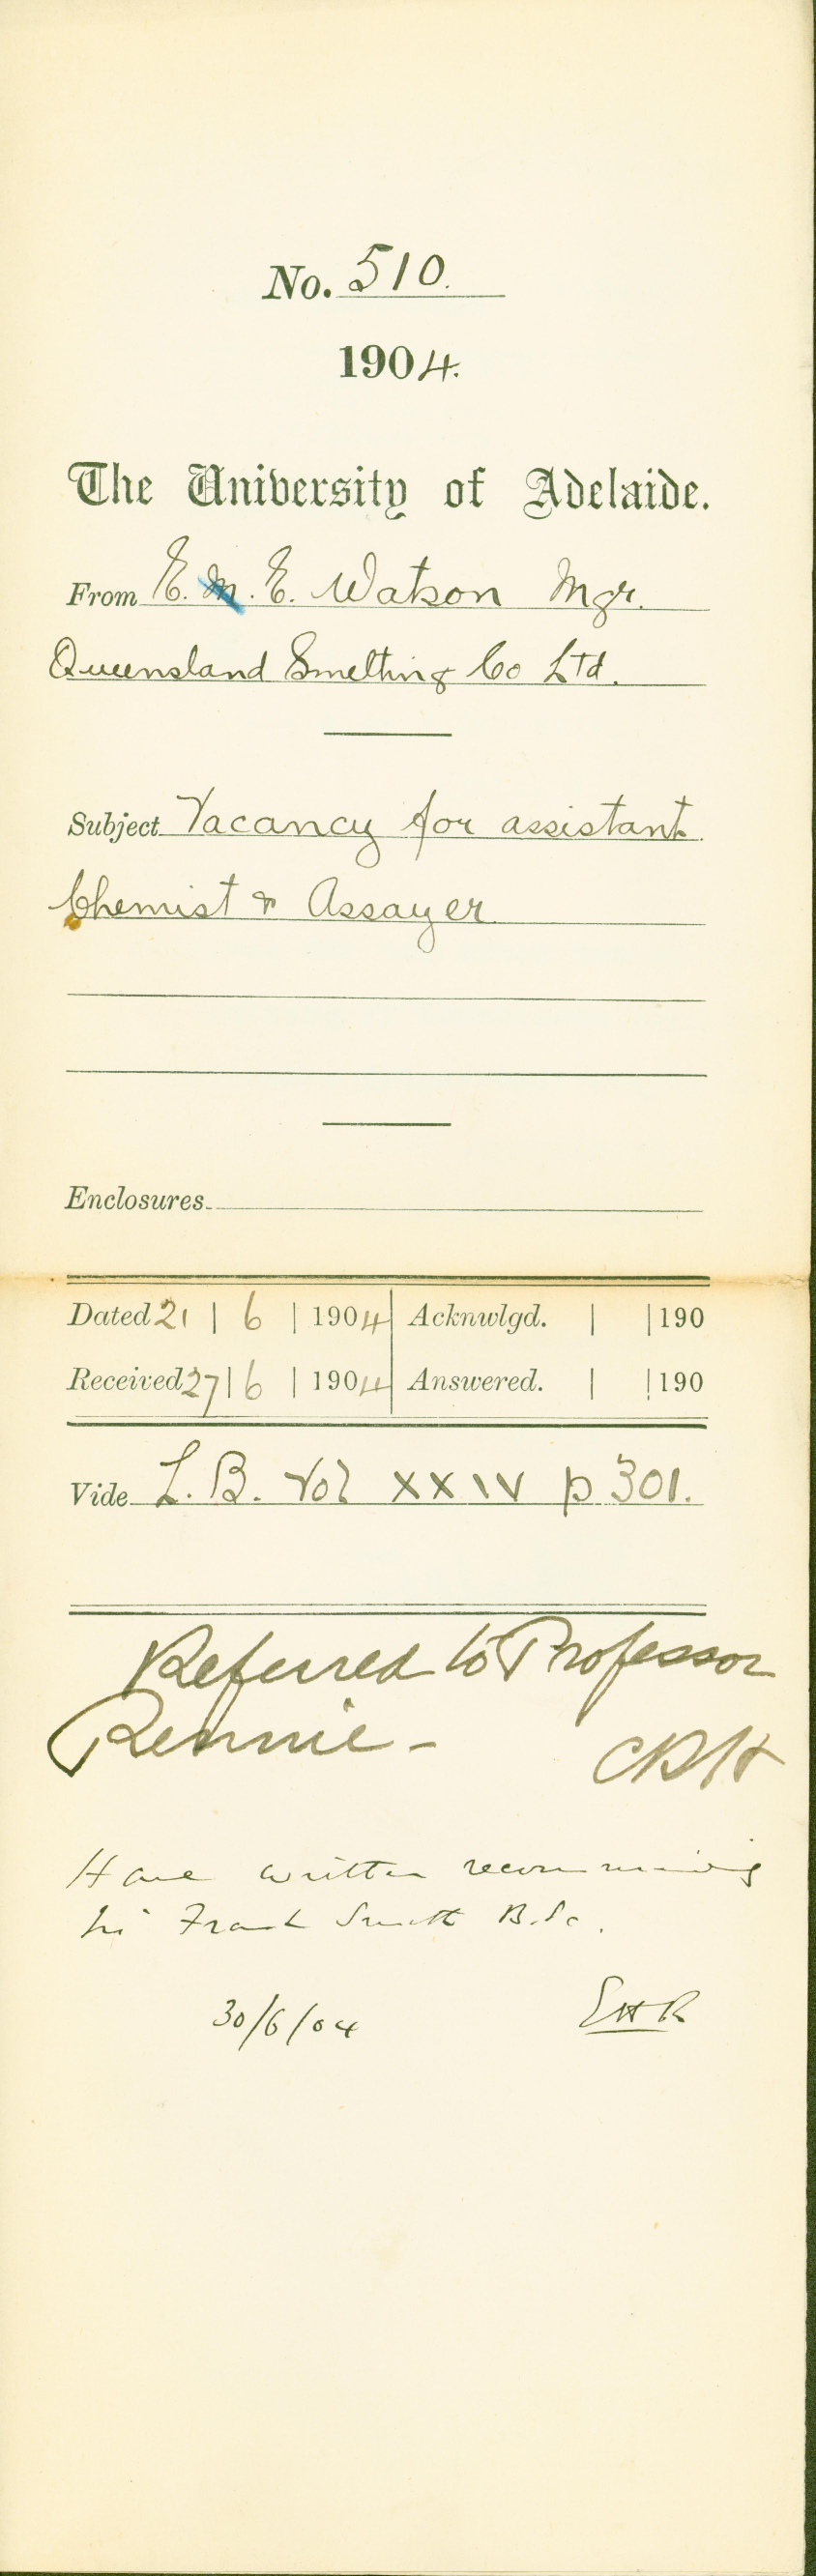 No. 510.
1904.
The University of Adelaide.
From E. M. E. Watson Mgr.
Queensland Smelting Co Ltd.
Subject Vacancy for assistant
Chemist & Assayer
Enclosures
Dated 21 | 6 | 1904 Acknwlgd. | | 190
Received 27 | 6 | 1904 Answered. | | 190
Vide L. B. Vol XXIV p 301.
Referred to Professor
Rennie -
Have written recommending
Frank Smith B.Sc.
30/6/04 EHR